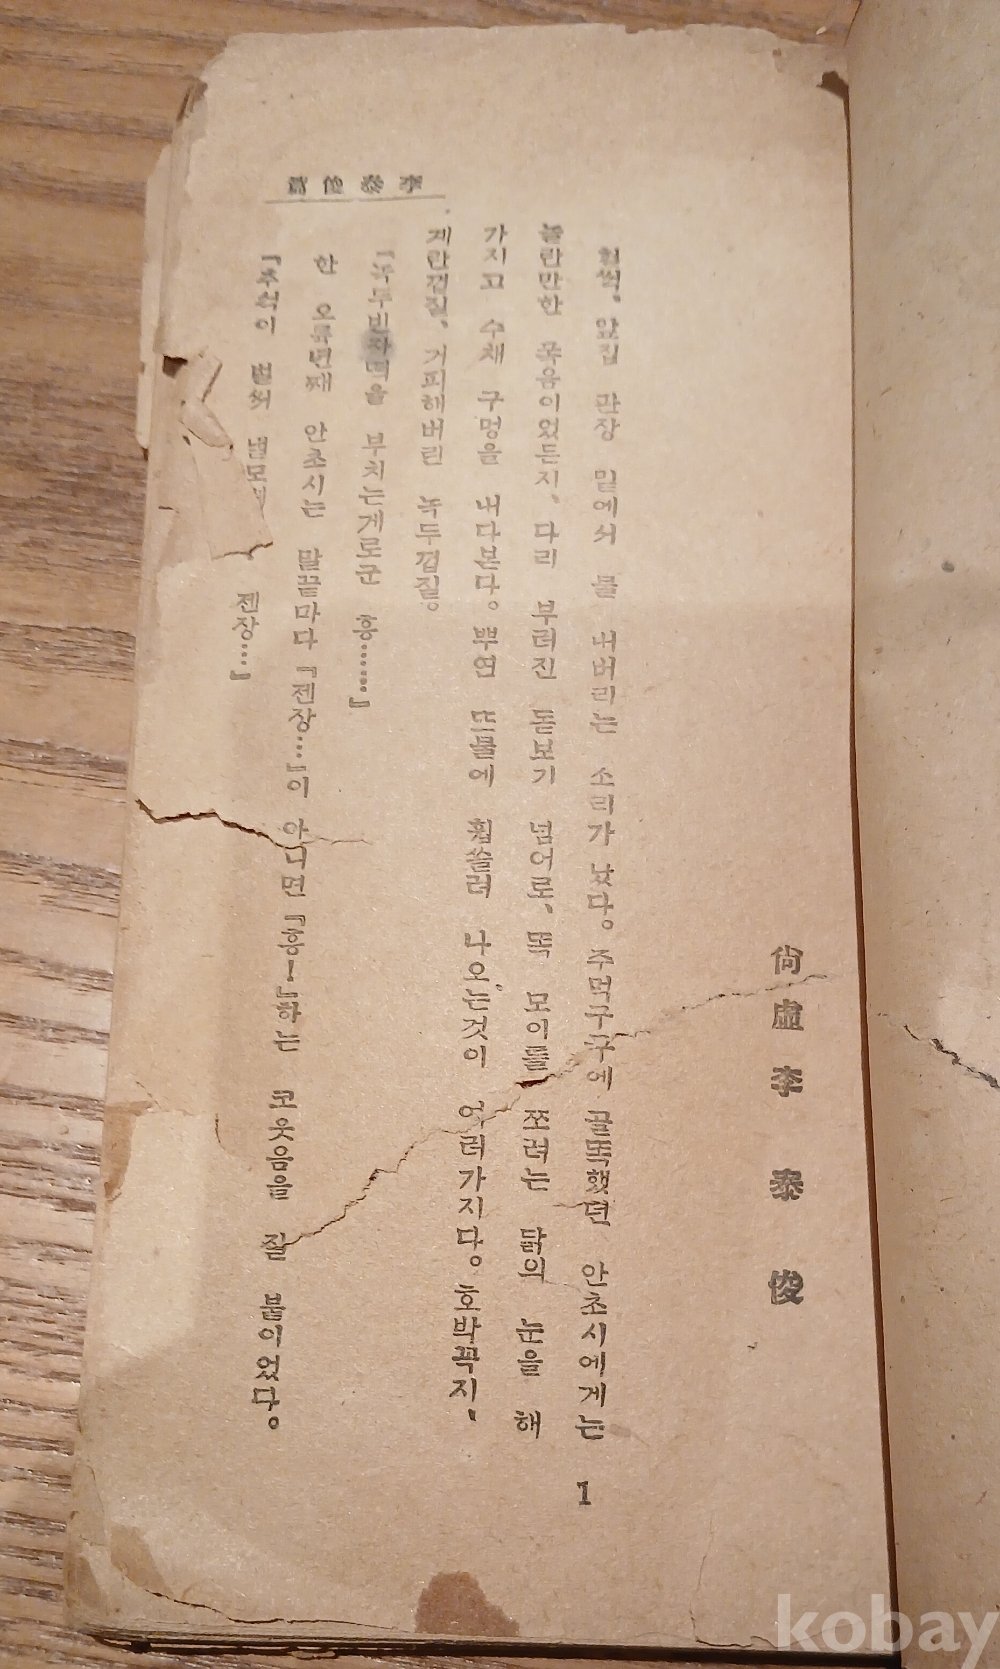 尙虛 李泰俊
휠쩍, 앞집 판장 밑에서 물 내버리는 소리가 났다。 주먹구구에 골똑했던 안초시에게는
놀란만한 폭음이었든지、 다리 부러진 돋보기 넘어로、 똑 모이를 쪼려는 닭의 눈을 해
가지고 수채 구멍을 내다본다。 뿌연 뜨물에 휩쓸려 나오는것이 여러가지다。 호박꼭지、
계란껍질、 거피해버린 녹두껍질。
『녹두빈자떡을 부치는게로군 흥……』
한 오륙년째 안초시는 말끝마다 『젠장…』이 아니면 『흥!』하는 코웃음을 잘 붙이었다。
『추석이 벌써 낼모 젠장…』
1
kobay